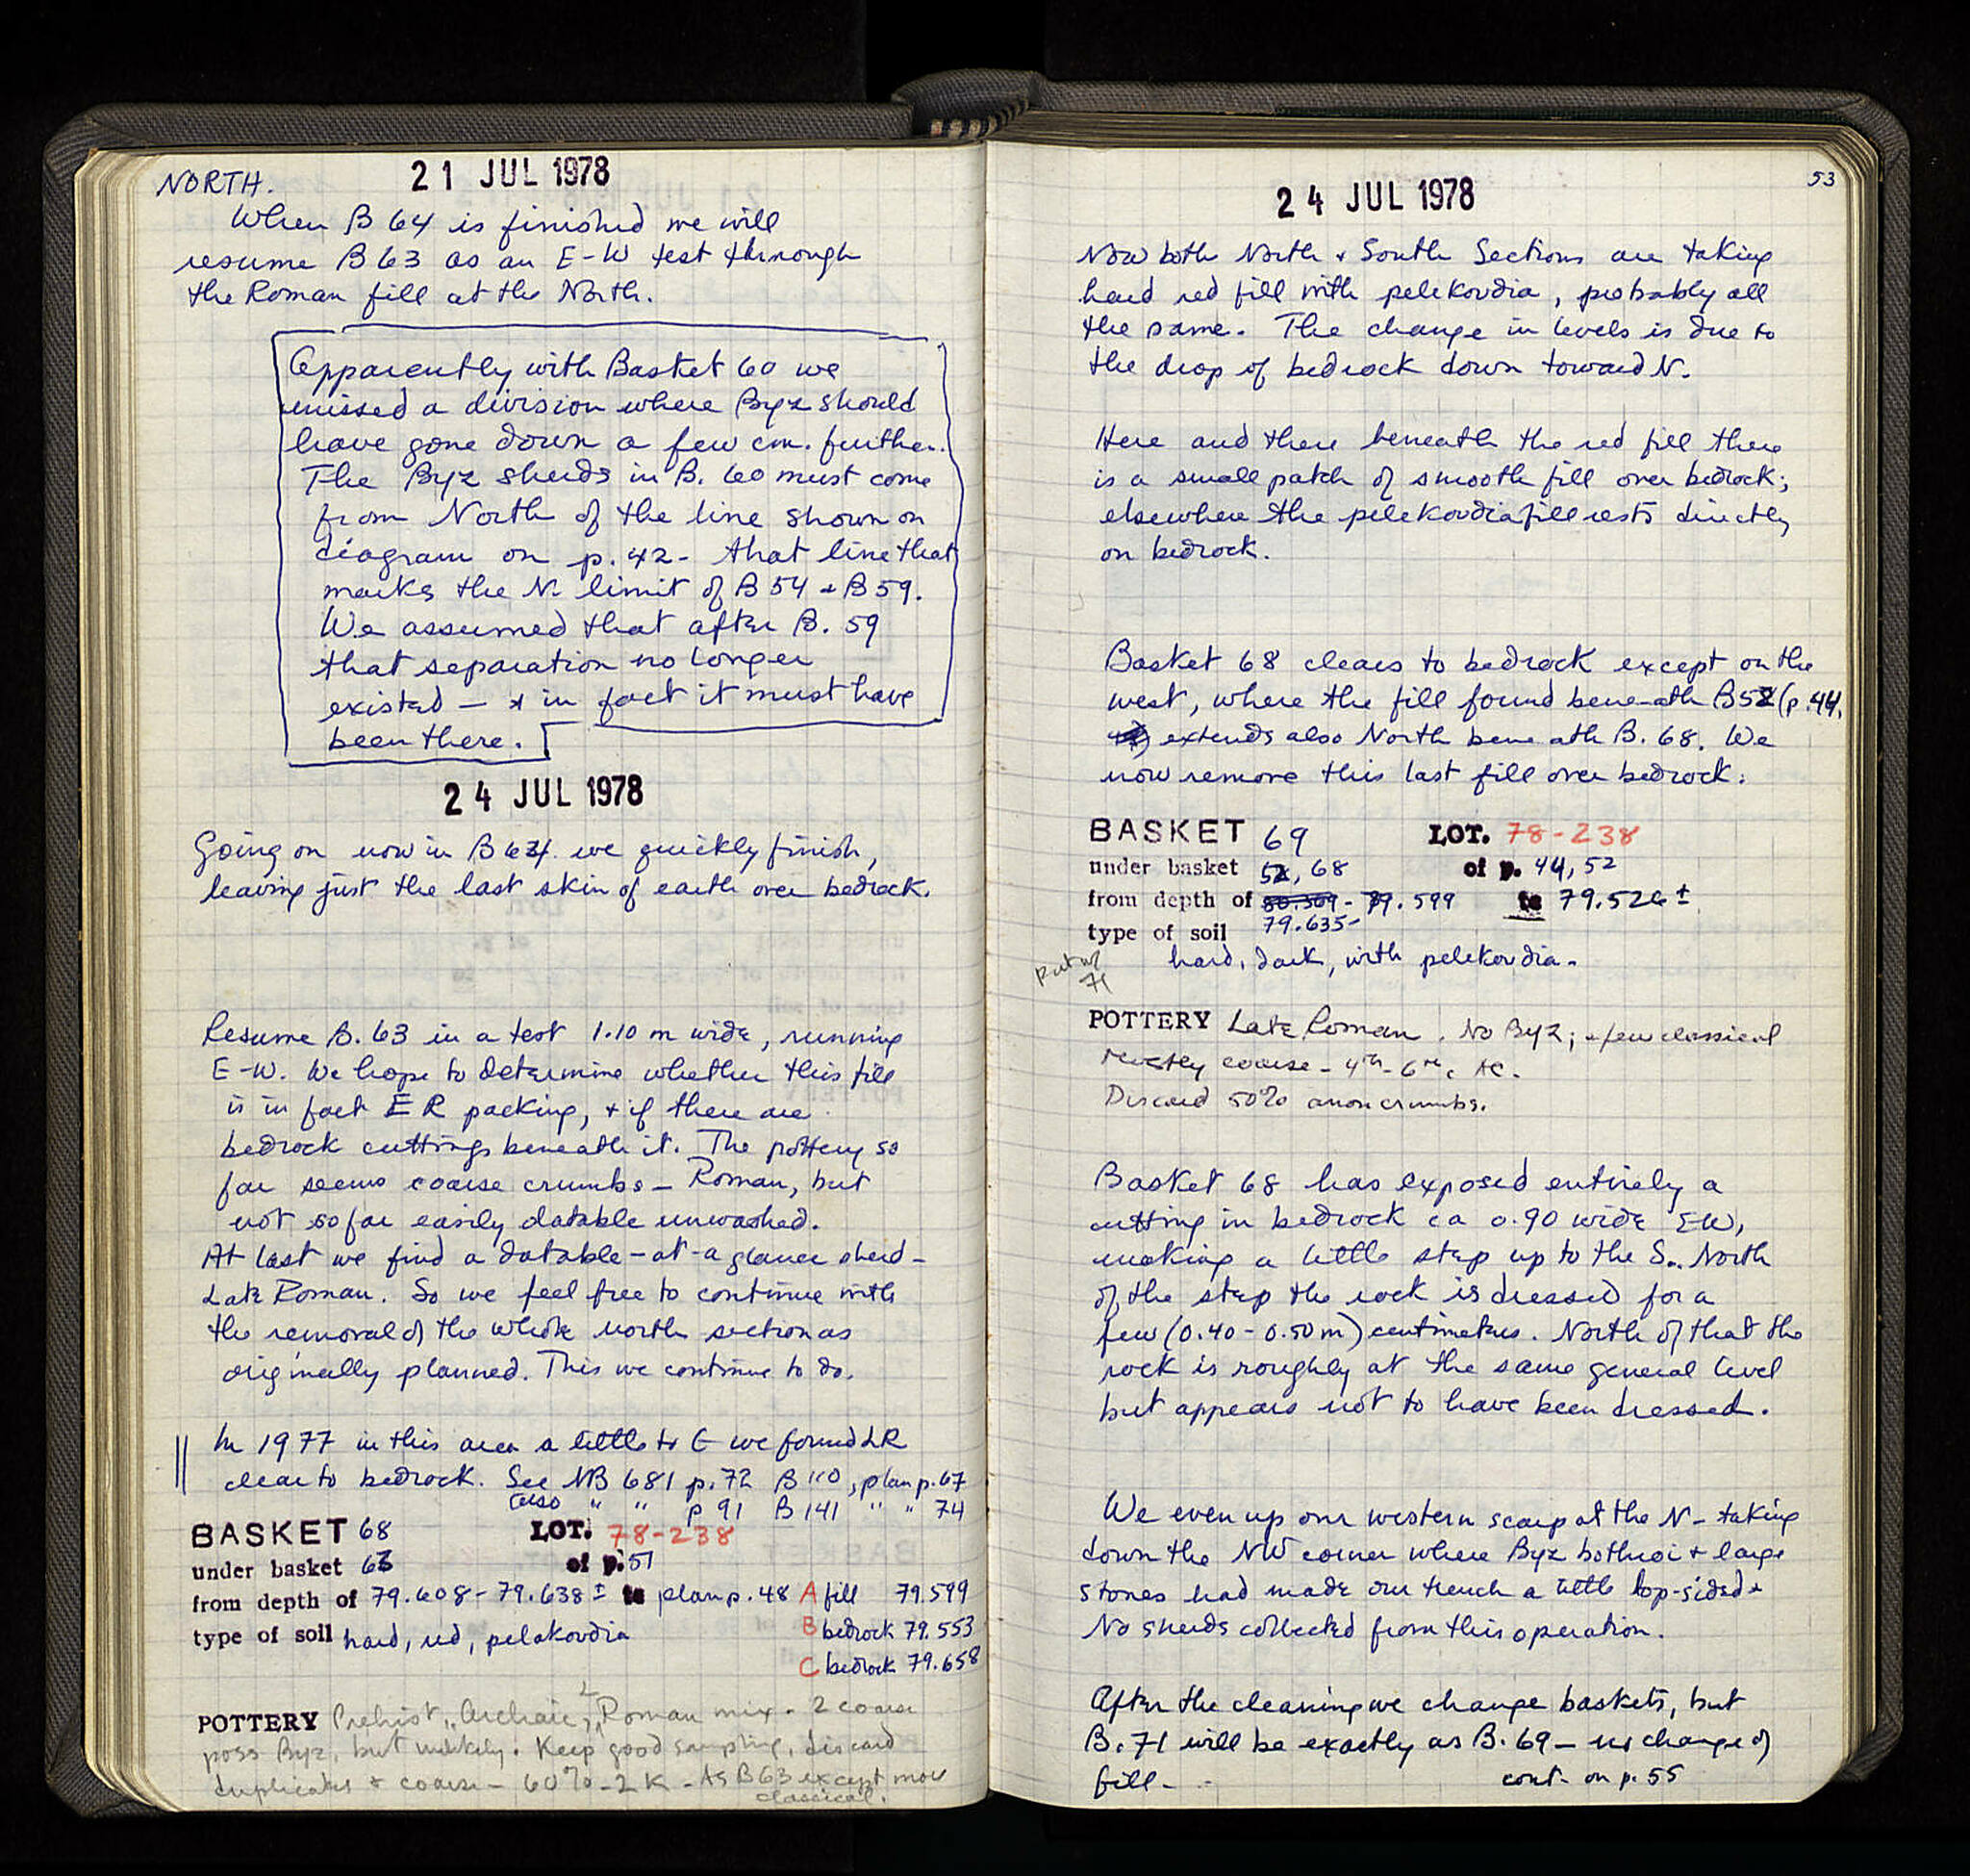 NORTH.
21 JUL 1978
When B 64 is finished we will
resume B 63 as an E-W test through
the Roman fill at the North.
Apparently with Basket 60 we
missed a division where Byz should
have gone down a few cm. further.
The Byz sherds in B. 60 must come
from North of the line shown on
diagram on p. 42 - that line that
marks the N. limit of B 54 + B 59.
We assumed that after B. 59
that separation no longer
existed — & in fact it must have
been there.
24 JUL 1978
Going on now in B 64 we quickly finish,
leaving just the last skin of earth over bedrock.
Resume B. 63 in a test 1.10 m wide, running
E-W. We hope to determine whether this fill
is in fact ER packing, + if there are
bedrock cuttings beneath it. The pottery so
far seems coarse crumbs — Roman, but
not so far easily datable unwashed.
At last we find a datable-at-a glance sherd -
Late Roman. So we feel free to continue with
the removal of the whole north section as
originally planned. This we continue to do.
In 1977 in this area a little to E we found LR
clear to bedrock. See NB 681 p. 72 B 110, plan p. 67
also " " p 91 B 141 " " 74
BASKET 68 LOT. 78-238
under basket 63 of p. 51
from depth of 79.608 - 79.638 ± to plan p. 48 A fill 79.599
type of soil hard, red, pelekoudia B bedrock 79.553
C bedrock 79.658
POTTERY Prehist, Archaic, Roman mix. 2 coarse
poss Byz, but unlikely. Keep good sampling, discard
duplicates & coarse - 60% - 2 K - As B 63 except more
classical.
53
24 JUL 1978
Now both North & South Sections are taking
hard red fill with pelekoudia, probably all
the same. The change in levels is due to
the drop of bedrock down toward N.
Here and there beneath the red fill there
is a small patch of smooth fill over bedrock;
elsewhere the pelekoudia fill rests directly
on bedrock.
Basket 68 clears to bedrock except on the
west, where the fill found beneath B52 (p. 44,
extends also North beneath B. 68. We
now remove this last fill over bedrock:
BASKET 69 LOT. 78-238
under basket 52, 68 of p. 44, 52
from depth of 80.309 - 79.599 to 79.526 ±
79.635 -
type of soil
hard, dark, with pelekoudia.
Put w/
71
POTTERY Late Roman. No Byz; a few classical
Mostly coarse - 4th - 6th c. AC.
Discard 50% anon crumbs.
Basket 68 has exposed entirely a
cutting in bedrock ca 0.90 wide EW,
making a little step up to the S.. North
of the step the rock is dressed for a
few (0.40 - 0.50 m) centimeters. North of that the
rock is roughly at the same general level
but appears not to have been dressed.
We even up our western scarp at the N - taking
down the NW corner where Byz bothroi + large
stones had made our trench a little lop-sided.
No sherds collected from this operation.
After the cleaning we change baskets, but
B. 71 will be exactly as B. 69 — no change of
fill -
cont. on p. 55